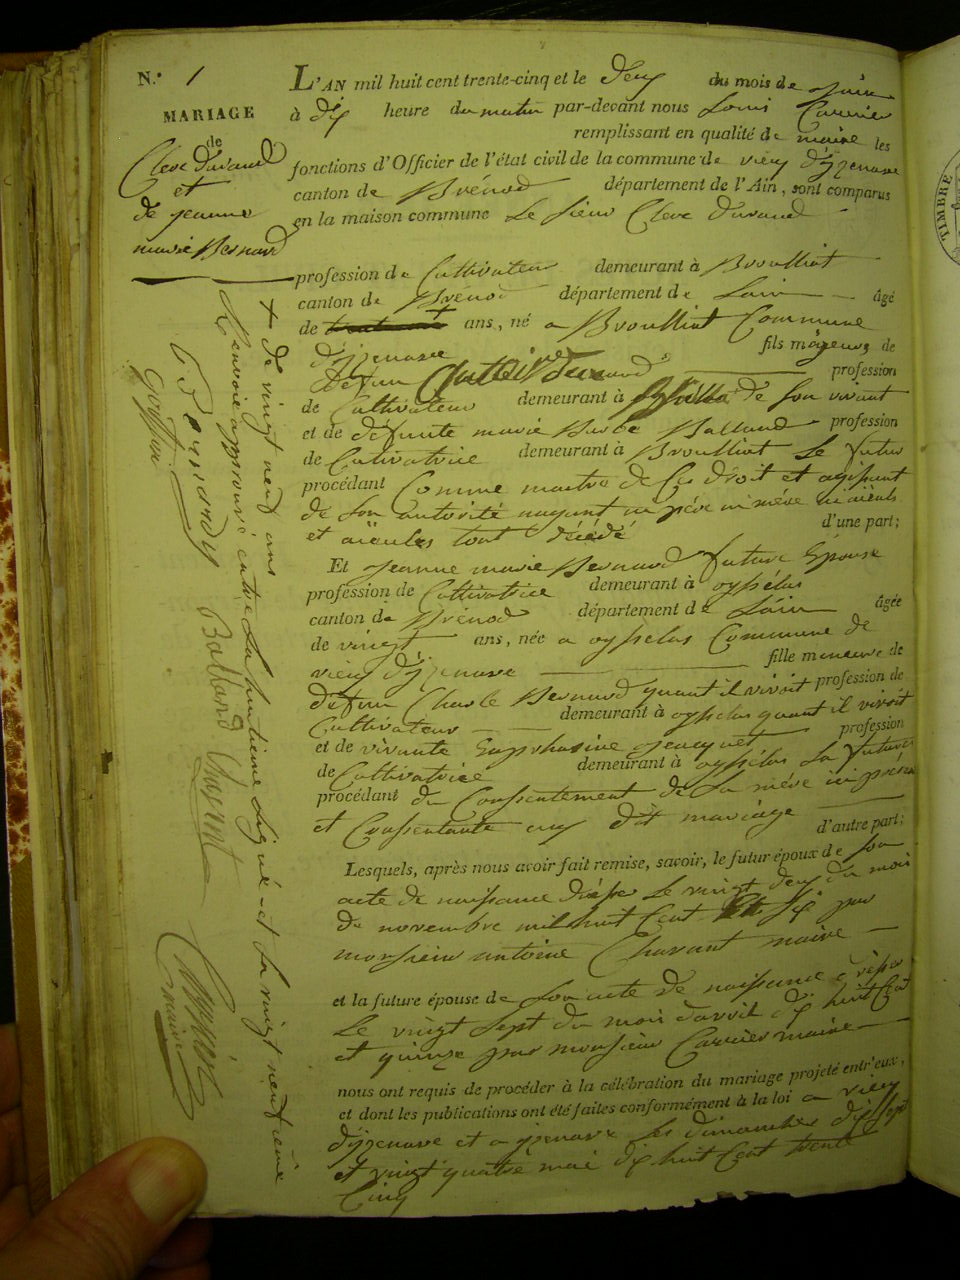 N.° 1
MARIAGE
de
Cleve Durand
et
de jeanne
marie Bernard
L'AN mil huit cent trente-cinq et le deux du mois de juin
à dix heure du matin par-devant nous Louis Carrier
remplissant en qualité de maire les
fonctions d'Officier de l'état civil de la commune de vieux d'yzenave
canton de Brénod département de l'Ain, sont comparus
en la maison commune Le sieur Cleve durand
profession de Cultivateur demeurant à Brouillat
canton de Brénod département de Lain âgé
de ans, né a Brouillat Commune
d'yzenave fils majeur de
défun durand profession
de Cultivateur demeurant à de son vivant
et de défunte marie Barbe Balland profession
de Cultivatrice demeurant à Brouillat Le futur
procédant Comme maitre de Ces droit et agissant
de son autorité nayant ni père ni mére ni aïeuls
et aïeules tout décédé d'une part;
Et jeanne marie Bernard future Epouse
profession de Cultivatrice demeurant à oysselas
canton de Brénod département de Lain âgée
de vingt ans, née a oysselas Commune de
vieux d'yzenave fille mineure de
défun Charle Bernard quant il vivoit profession de
Cultivateur demeurant à oysselas quant il vivoit
et de vivante Euphrasine jacquet profession
de Cultivatrice demeurant à oysselas La future
procédant du Consentement de Sa mére ici présente
et Consentante aux dit mariage d'autre part;
Lesquels, après nous avoir fait remise, savoir, le futur époux de son
acte de naissance Drésse Le vingt deux du mois
de novembre mil huit Cent six par
monsieur antoine Chavant maire
et la future épouse de Son acte de naissance drésse
Le vingt sept du mois davril dix huit Cent
et quinze par monsieur Carrier maire
nous ont requis de procéder à la célébration du mariage projeté entr'eux,
et dont les publications ont été faites conformément à la loi a vieux
d'yzenave et a yzenave les dimanches dix sept
et vingt quatre mai dix huit Cent trente
Cinq
+ de vingt neuf ans
Renvoie approuvé entre La huitieme ligne et La vingt neufieme
Bernardy Balland Vincent Carrier
Gouffon maire
TIMBRE